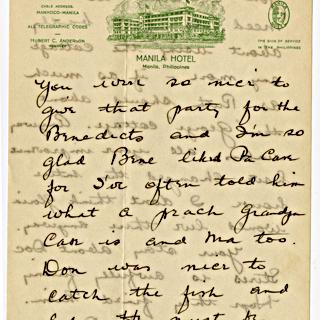 CABLE ADDRESS:
MANHOCO-MANILA
ALL TELEGRAPHIC CODES
HUBERT C. ANDERSON
THE SIGN OF SERVICE
IN THE PHILIPPINES
MANILA HOTEL
Manila, Philippines
You were so nice to
give that party for the
Benedicts and I'm so
glad Bene liked Pa Can
for I've often told him
what a peach Grandpa
Can is and Ma too.
Don was nice to
catch the fish and